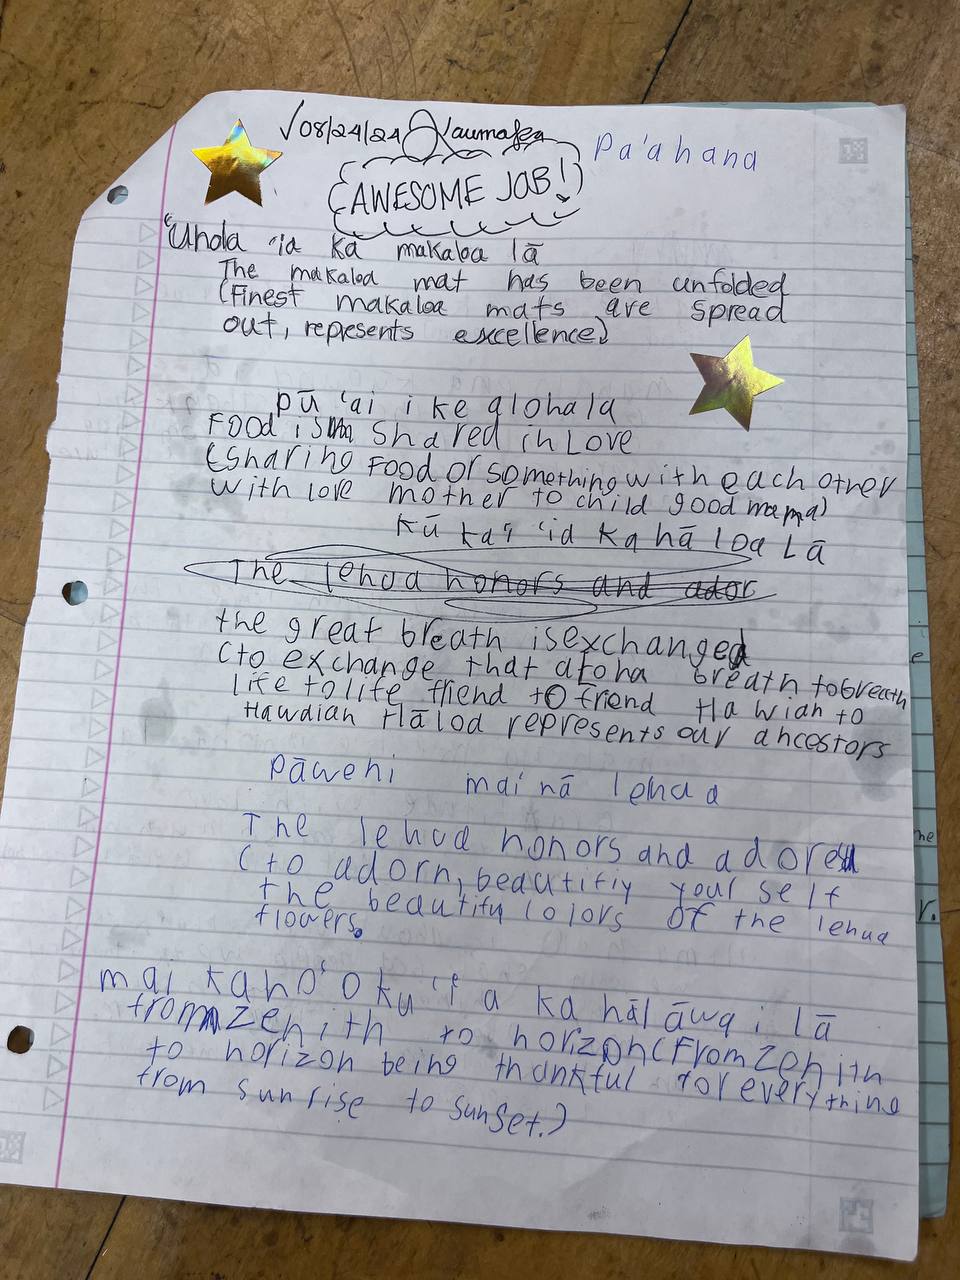 √08/24/24 Kaumafea
Pa'ahana
AWESOME JOB!
"Uhola 'ia ka makaloa lā
The makaloa mat has been unfolded
(Finest makaloa mats are spread
out, represents excellence)
pū 'ai i ke alohala
Food is shared in Love
(sharing Food or something with each other
with love mother to child good mama)
kū ka'i 'ia ka hā loa Lā
The lehua honors and ador
the great breath is exchanged
(to exchange that aloha breath to breath
life to life friend to friend Hawian to
Hawaiian Hāloa represents our ancestors
pāwehi mai nā lehua
The lehua honors and adores
(to adorn, beautifiy your self
the beautify colors of the lehua
flowers.
mai ka ho'oku'i a ka hālāwai lā
from zenith to horizon (From zenith
to horizon being thankful for everything
from sunrise to sunset.)
e
me
r.